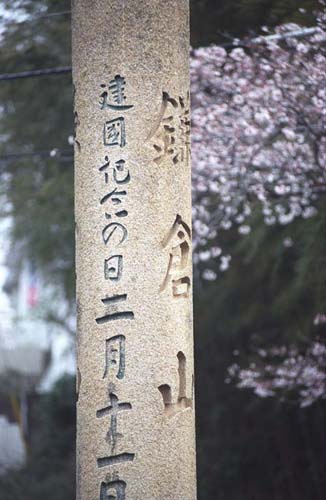 鎌倉山
建國記念の日二月十一日